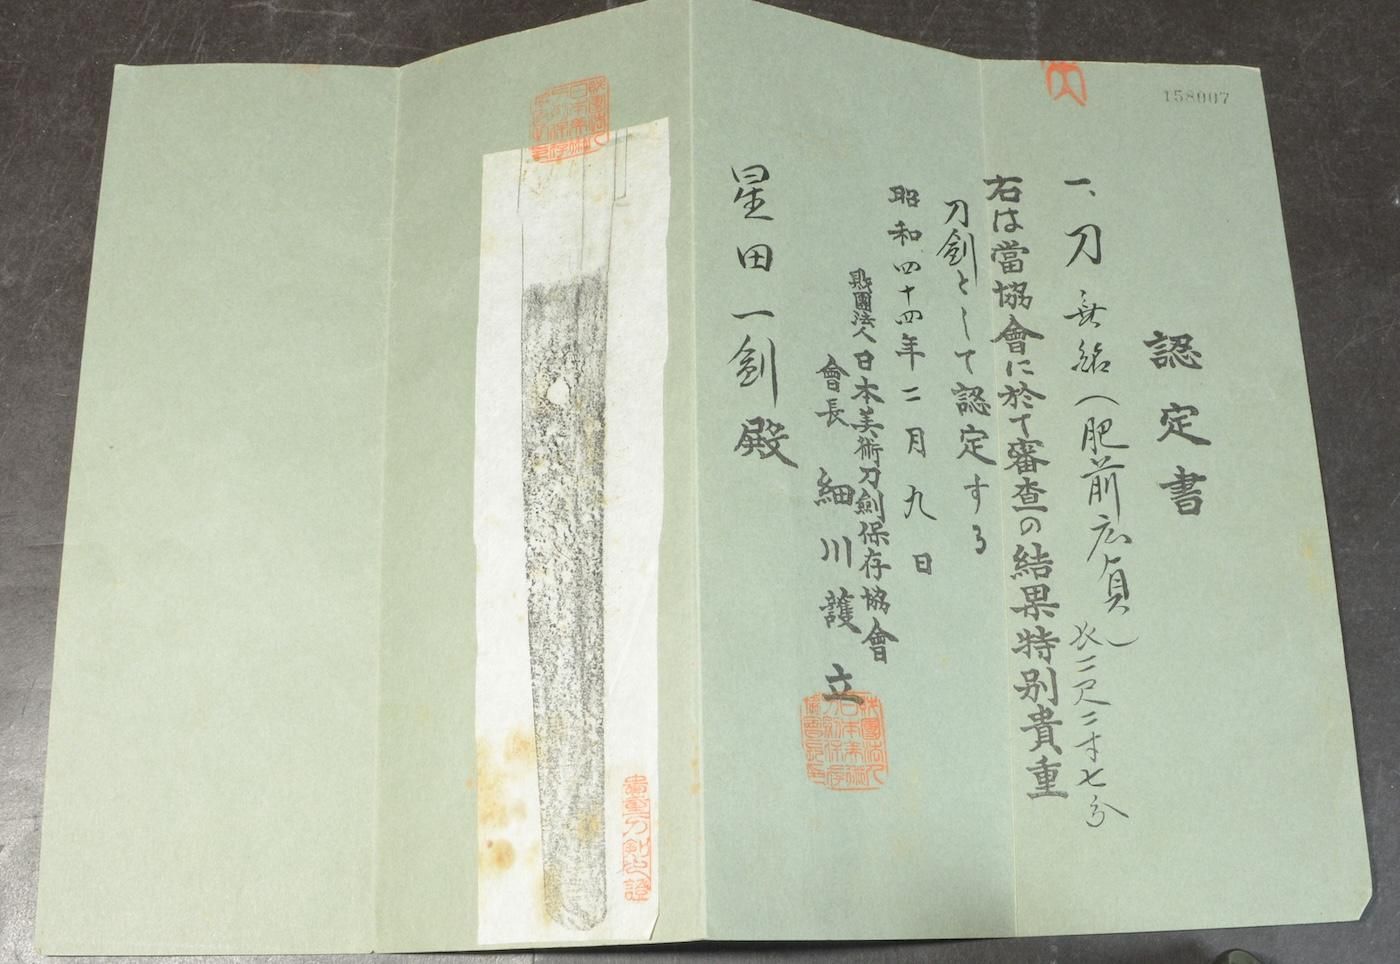 158007
認定書
一、刀 無銘(肥前広貞) 長二尺二寸七分
右は當協會に於て審査の結果特別貴重
刀劍として認定する
昭和四十四年二月九日
財團法人日本美術刀劍保存協會
會長 細川護立
星田一劍殿
貴重刀剣之證